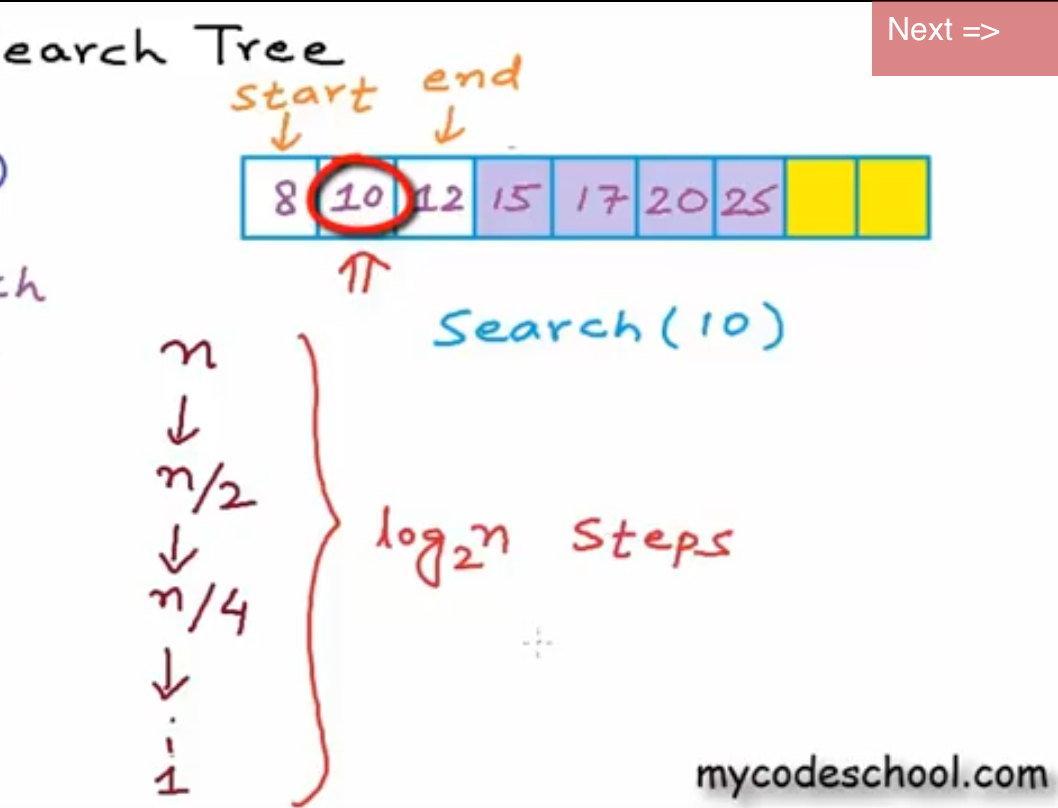 earch Tree
Next =>
start end
8 10 12 15 17 20 25
ch
Search(10)
n
n/2
n/4
1
log₂n steps
mycodeschool.com